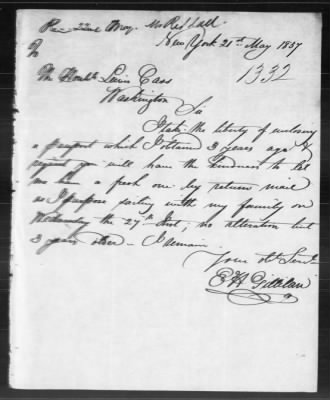 Rec 22nd May.
New York 21st May 1857
1332
To
The Honble Lewis Cass
Washington
Sir
I take the liberty of enclosing
a passport which I obtained 3 years ago &
request you will have the kindness to let
me have a fresh one by return mail
as I purpose sailing with my family on
Wednesday the 27th Inst, no alteration but
3 years older – I remain
Your Obt Servt
E H Gillilan